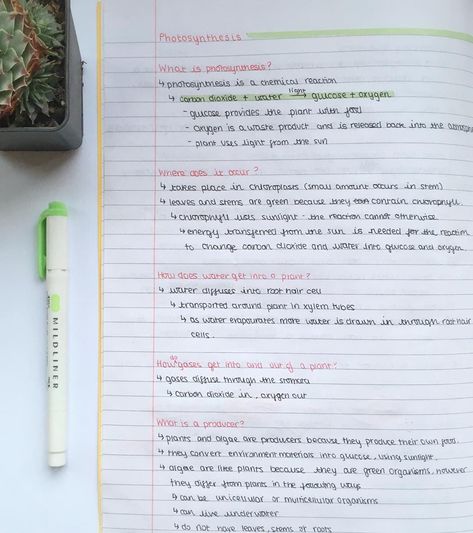 Photosynthesis
What is photosynthesis?
↳ photosynthesis is a chemical reaction
light
↳ carbon dioxide + water → glucose + oxygen
- glucose provides the plant with food
- oxygen is a waste product and is released back into the
- plant uses light from the sun
Where does it occur?
↳ takes place in chloroplasts (small amount occurs in stem)
↳ leaves and stems are green because they contain chlorophyll.
↳ chlorophyll uses sunlight - the reaction cannot otherwise.
↳ energy transferred from the sun is needed for the reaction
to change carbon dioxide and water into glucose and oxygen.
How does water get into a plant?
↳ water diffuses into root hair cell
↳ transported around plant in xylem tubes
↳ as water evapourates more water is drawn in through root hair
cells.
How do gases get into and out of a plant?
↳ gases diffuse through the stomata
↳ carbon dioxide in, oxygen out
What is a producer?
↳ plants and algae are producers because they produce their own food.
↳ they convert environment materials into glucose, using sunlight.
↳ algae are like plants because they are green organisms, however
they differ from plants in the following ways
↳ can be unicellular or multicellular organisms
↳ can live underwater
↳ do not have leaves, stems or roots
MILDLINER